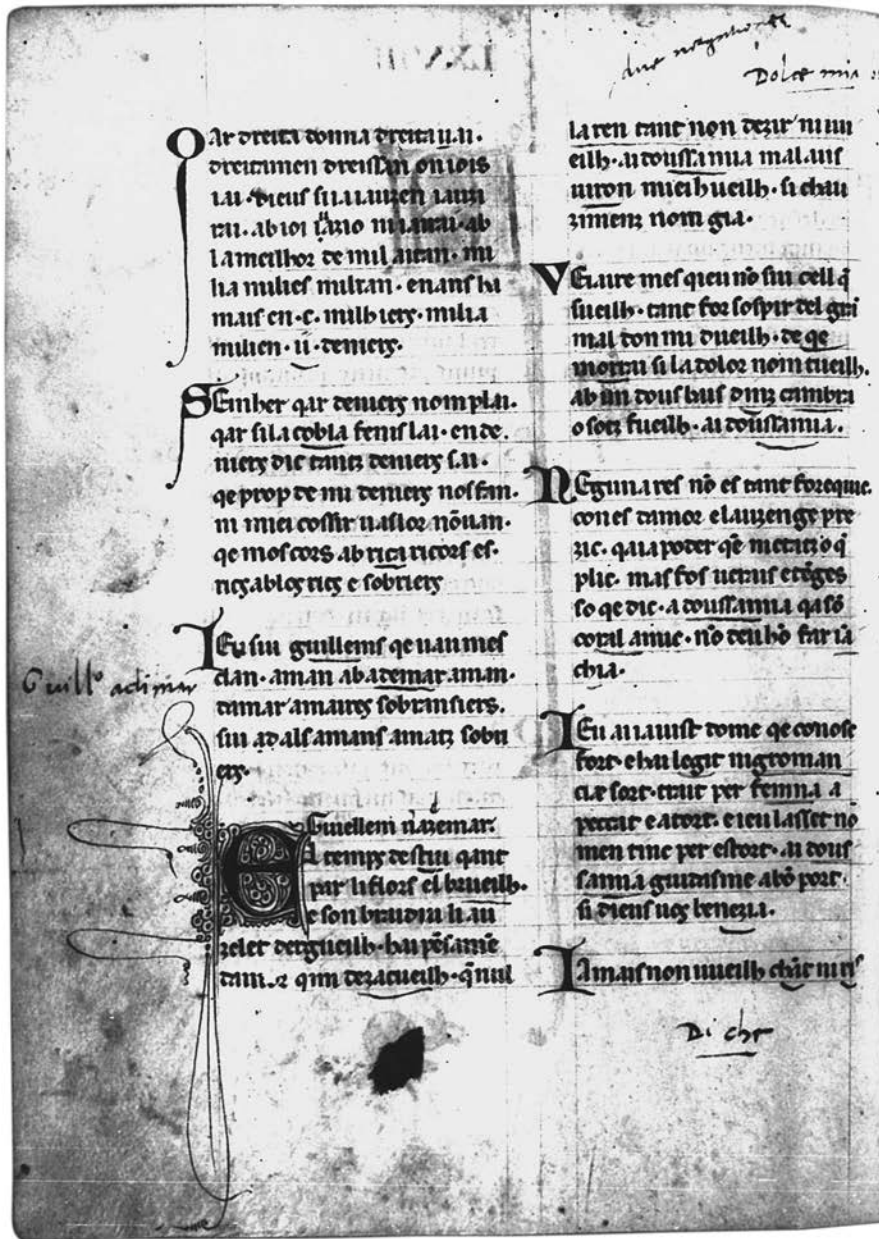 Dolce mia
Qar dreita donna dreita u.ai.
dreitamen dreissan on iois
iai. dieus si la lauzen lauz
rai. ab ioi
la meilhor de mil aitan. mi
lia milies miltan. enans ha
mais en .c. milhiers. milia
milien .ii. deniers.
SEinher qar deniers nom plai.
qar si la cobla fenis lai. en de
niers dic tantz deniers s.ai.
qe prop de mi deniers nos fan.
ni miei cossir uas lor nōuan.
qe mos cors ab rica ricors es.
rics ab los rics e sobriers
IEu sui guillems qe uau mes
clan. aman ab ademar aman.
damar amaires sobransiers.
sui ad als amans amatz sobri
ers.
Guill.o adimar
Guiellem nazemar.
El temps destiu qant
par li flors el brueilh.
e son braidiu li au
zelet dergueilh. hai pēsamē
damor qim dezacueilh. q̄ nul
la ren tant non dezir ni uu
eilh. ai doussa mia mal aus
uiron miei hueilh. si chau
zimenz nom gia.
VEiaire mes qieu nō sui cell q̄
sueilh. tant fort sospir del gran
mal don mi dueilh. de qe
morrai si la dolor nom tueilh.
ab un dous bais dinz cambra
o sotz fueilh. ai doussa mia.
NEguna res nō es tant for
con es damor e lauzenge pre
zic. q aia poder qē
plic. mas fos uerais
so qe dic. a doussa mia q a sō
coral amic. nō deu hō far
chia.
IEu ai auist dome qe conosc
fort. e hai legit nigroman
ciæ sort. trait per femna a
peccat e a tort. e ieu lasset nō
men tinc per estort. ai dous
sa mia guidatsme a bō port.
si dieus uos benezia.
IAmais non uueilh chāt ni ris
Di che